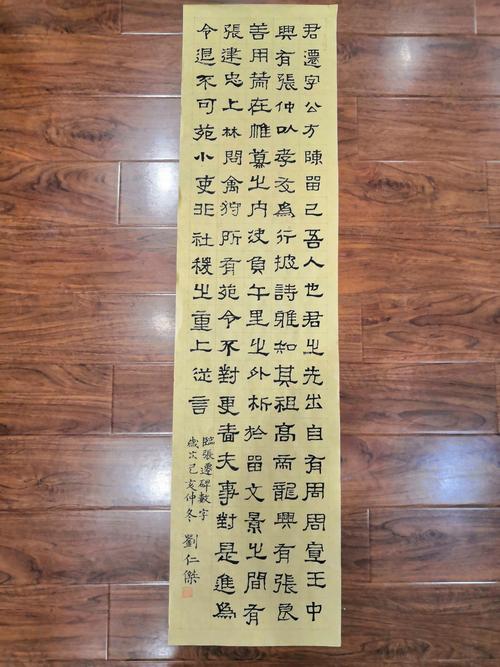 君遷字公方陳留己吾人也君之先出自有周周宣王中
興有張仲以孝友為行披詩雅知其祖高帝龍興有張良
善用籌在帷幕之內決負千里之外析於留文景之間有
張建忠上林問禽狩所有苑令不對更嗇夫事對是進為
令退不可苑小吏非社稷之重上從言
臨張遷碑數字
歲次己亥仲冬 劉仁傑